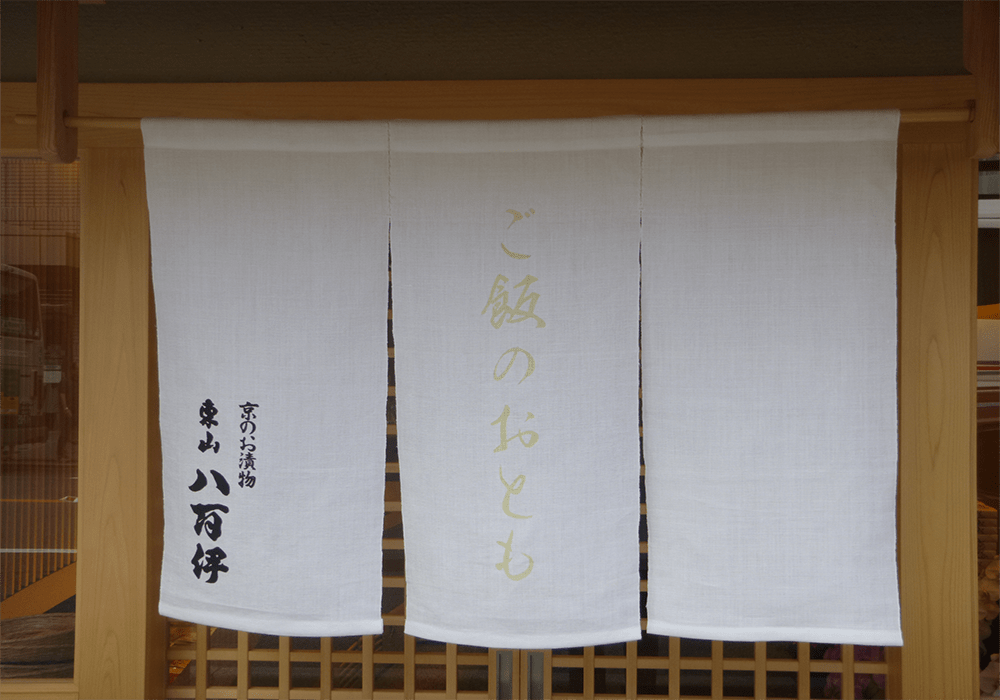 ご飯のおとも
京のお漬物
東山 八百伊